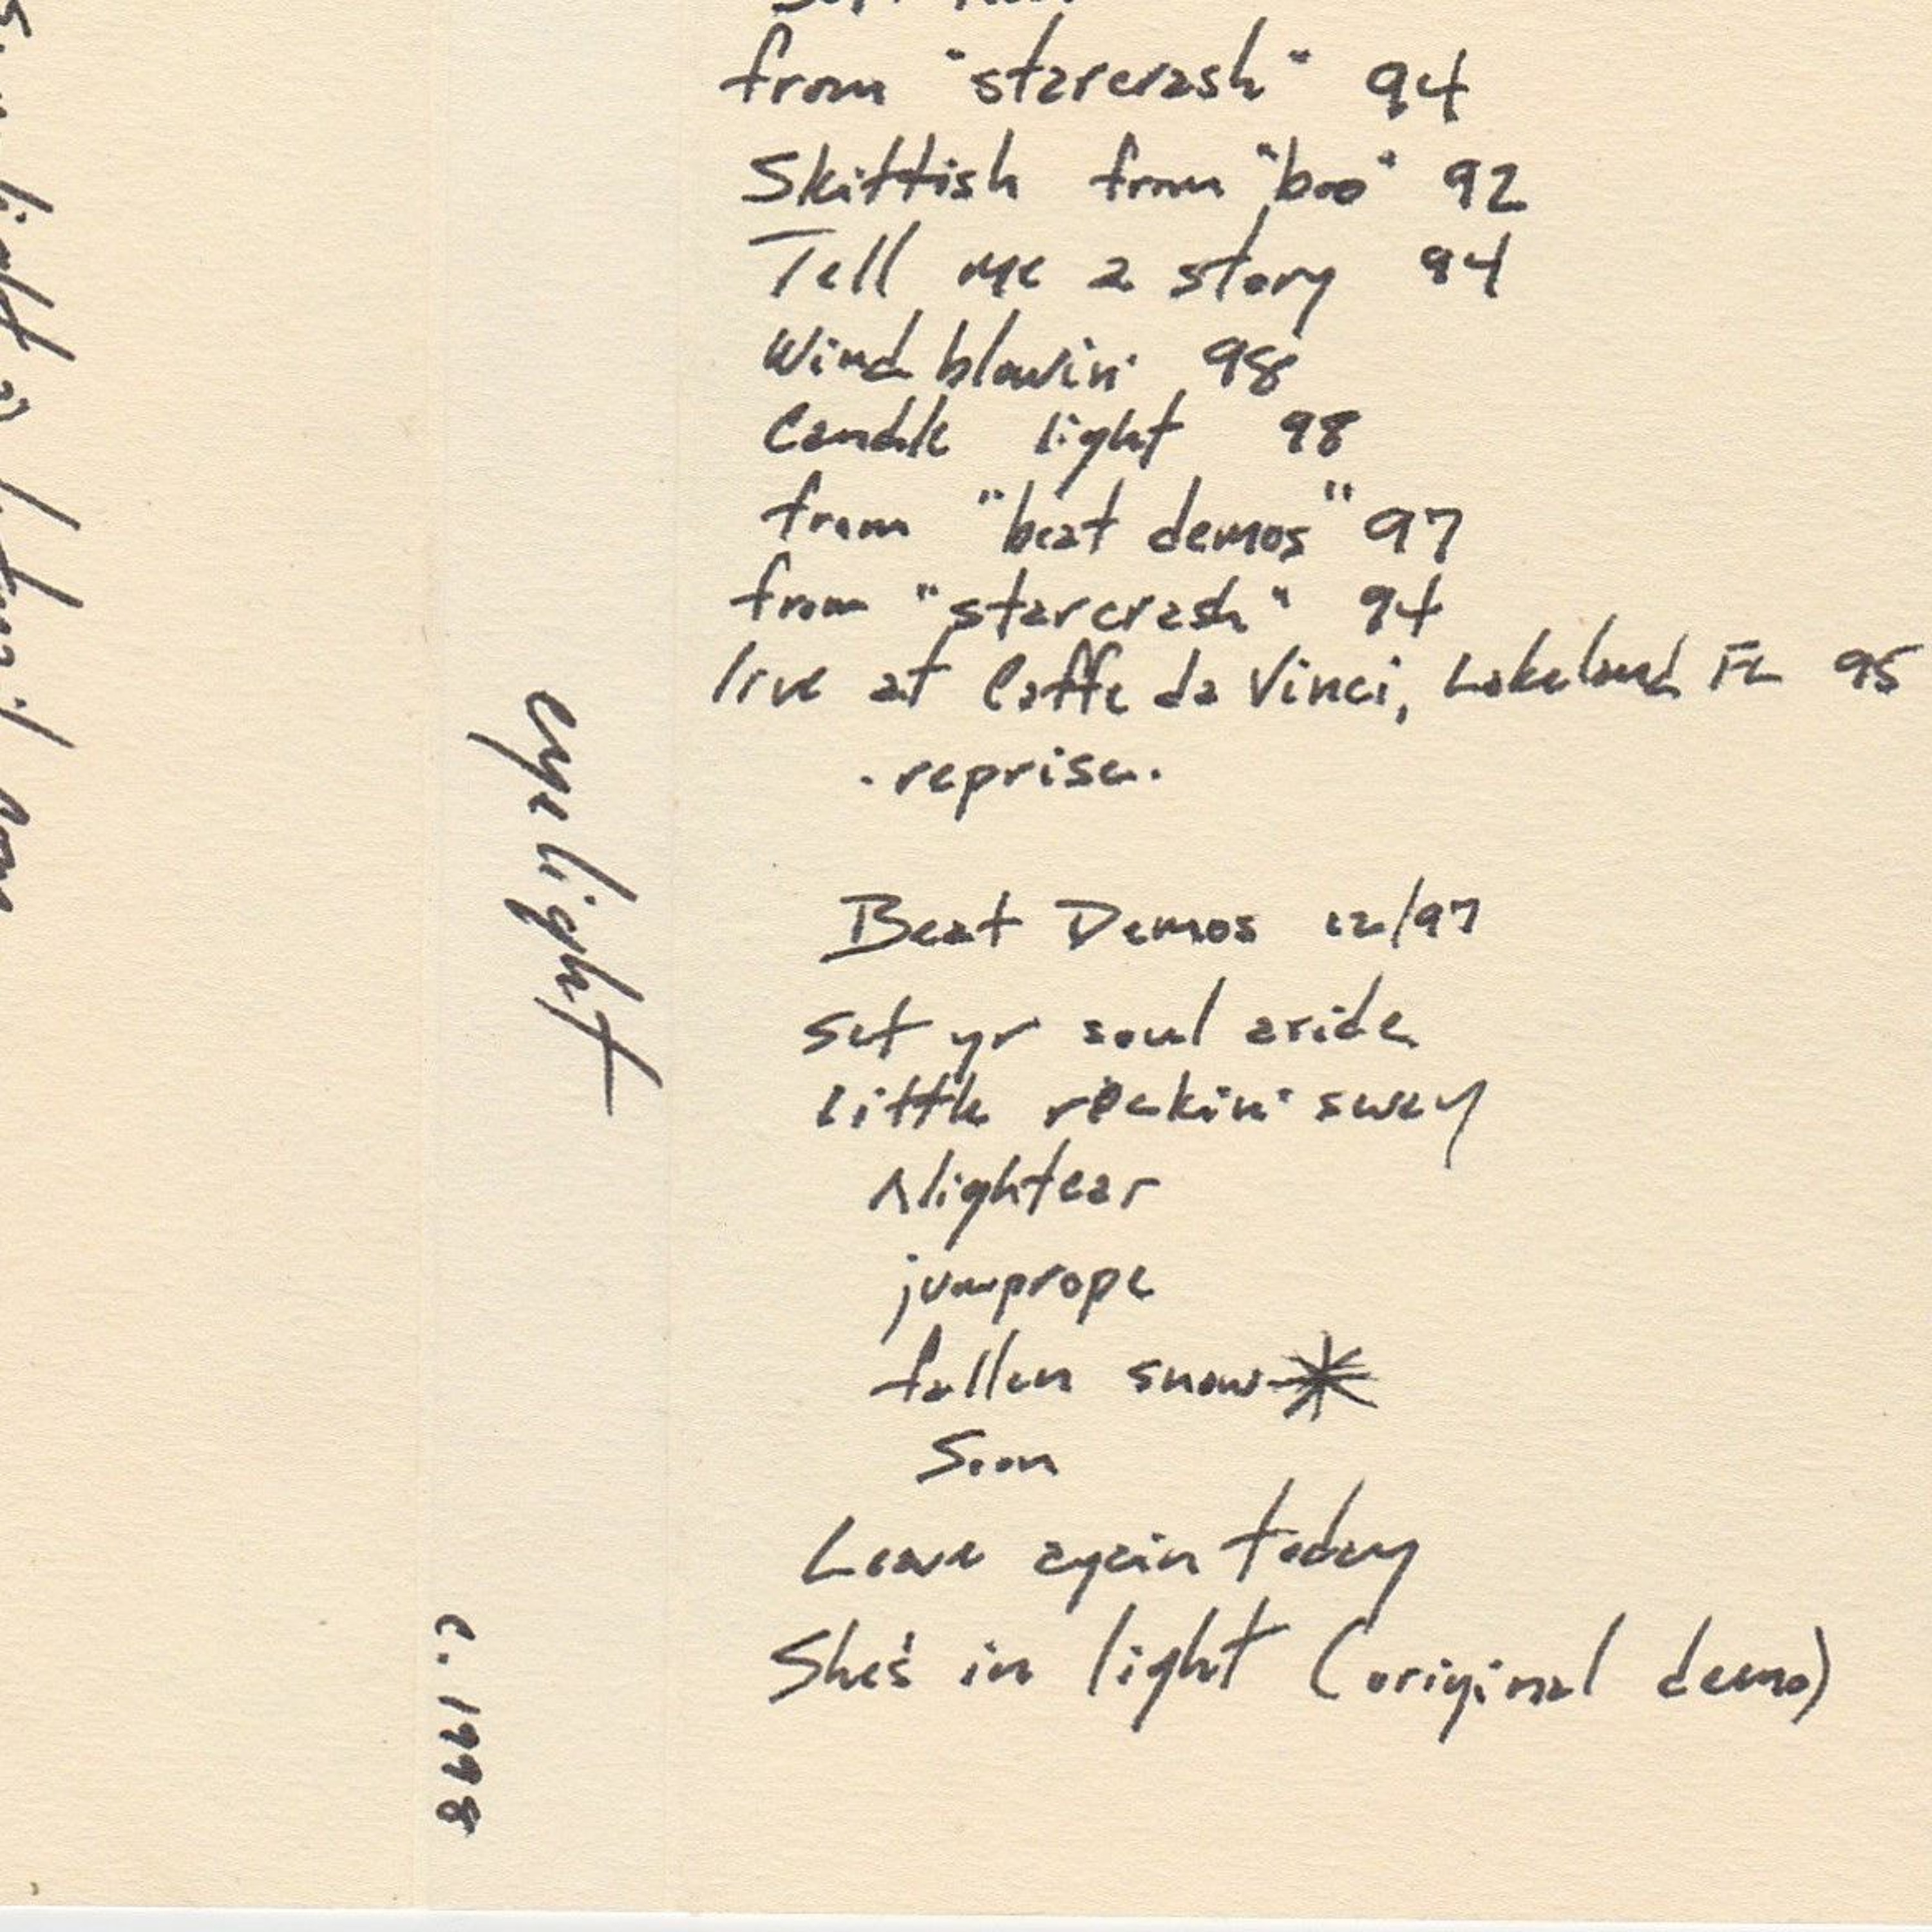 from "starcrash" 94
Skittish from "boo" 92
Tell me a story 94
Wind blowin' 98
Candle light 98
from "beat demos" 97
from "starcrash" 94
live at Caffe da Vinci, Lakeland FL 95
·reprise·
Beat Demos 12/97
Set yr soul aside
Little rockin' sway
Nightear
jumprope
fallen snow
Soon
Leave again today
She's in light (original demo)
eyelight
c. 1998